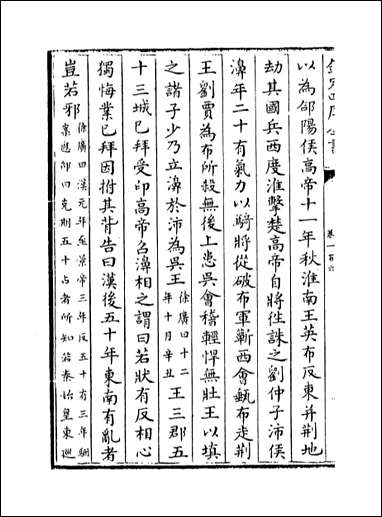 欽定四庫全書
卷一百六
以為郃陽侯高帝十一年秋淮南王英布反東并荊地
劫其國兵西度淮擊楚高帝自將往誅之劉仲子沛侯
濞年二十有氣力以騎將從破布軍蘄西會甀布走荊
王劉賈為布所殺無後上患吳會稽輕悍無壯王以填
之諸子少乃立濞於沛為吳王徐廣曰十二年十月辛丑王三郡五
十三城已拜受印高帝召濞相之謂曰若狀有反相心
獨悔業已拜因拊其背告曰漢後五十年東南有亂者
豈若邪徐廣曰漢元年至景帝三年反五十有三年駰案應邵曰克期五十占者所知若秦始皇東巡